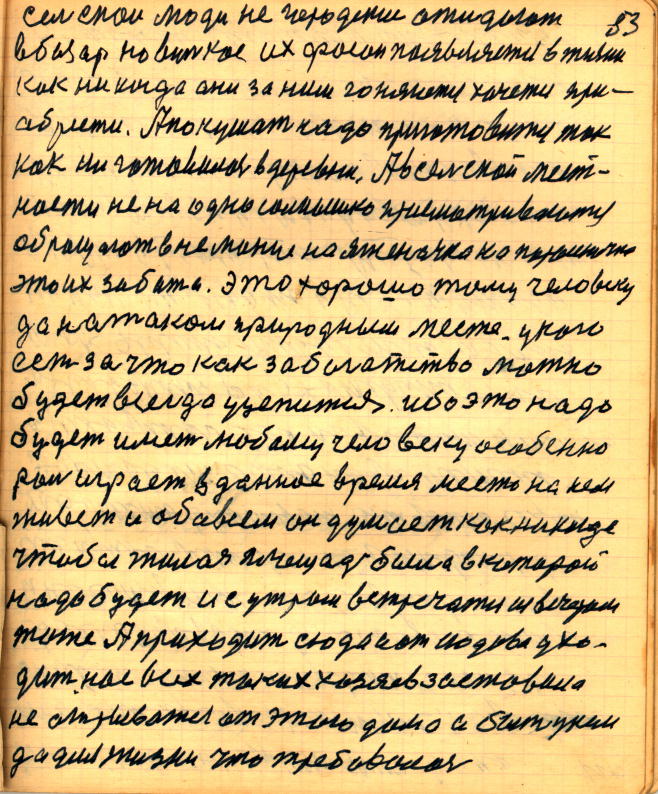 селской моди не городские ожидают 83
в базар новинкое их фасон появляется в жизни
как никогда они за ним гоняются хочется при-
абрести. А покушат надо приготовитця так
как ни готовилос в деревни. А в селской мест-
ности не на одно солнышко присматриваются
обращают внемание на
это их забота. Это хорошо тому человеку
да на таком природным месте у кого
сет за что как за богатство можно
будет всегда уцепится. ибо это надо
будет имет любому человеку особенно
рол играет в данное время место на нем
живет и обо всем он думает как никогде
чтобы жилая площад была в которой
надо будет и с утром встречатися и вечером
тоже А приходит сюда и от сюдова ухо-
дит, нас всех таких хозяев заставила
не отрыватся от этого дома а быт у нем
да для жизни что требовалос